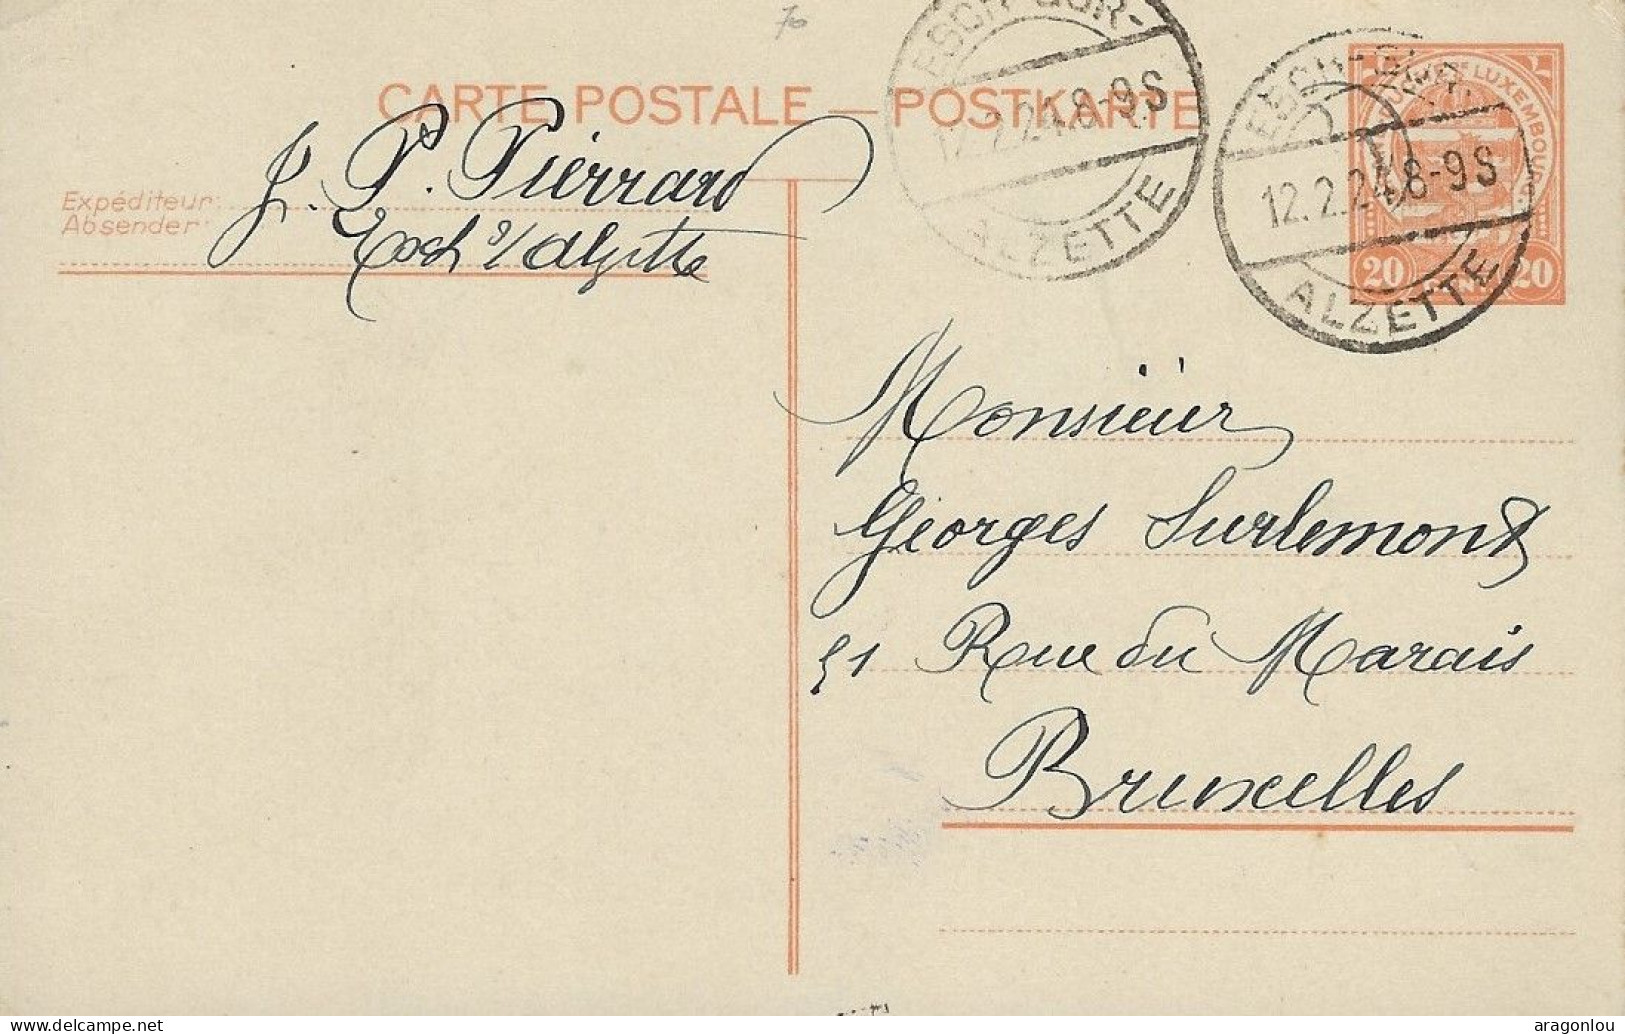 70
CARTE POSTALE — POSTKARTE
Expéditeur:
Absender:
J. P. Piérrard
Esch s/ Alzette
ESCH-SUR-
12.2.24.8-9S
ALZETTE
ESCH-SUR-
12.2.24.8-9S
ALZETTE
LUXEMBOURG
20 CENT. 20
Monsieur
Georges Surlemont
51 Rue du Marais
Bruxelles
aragonlou